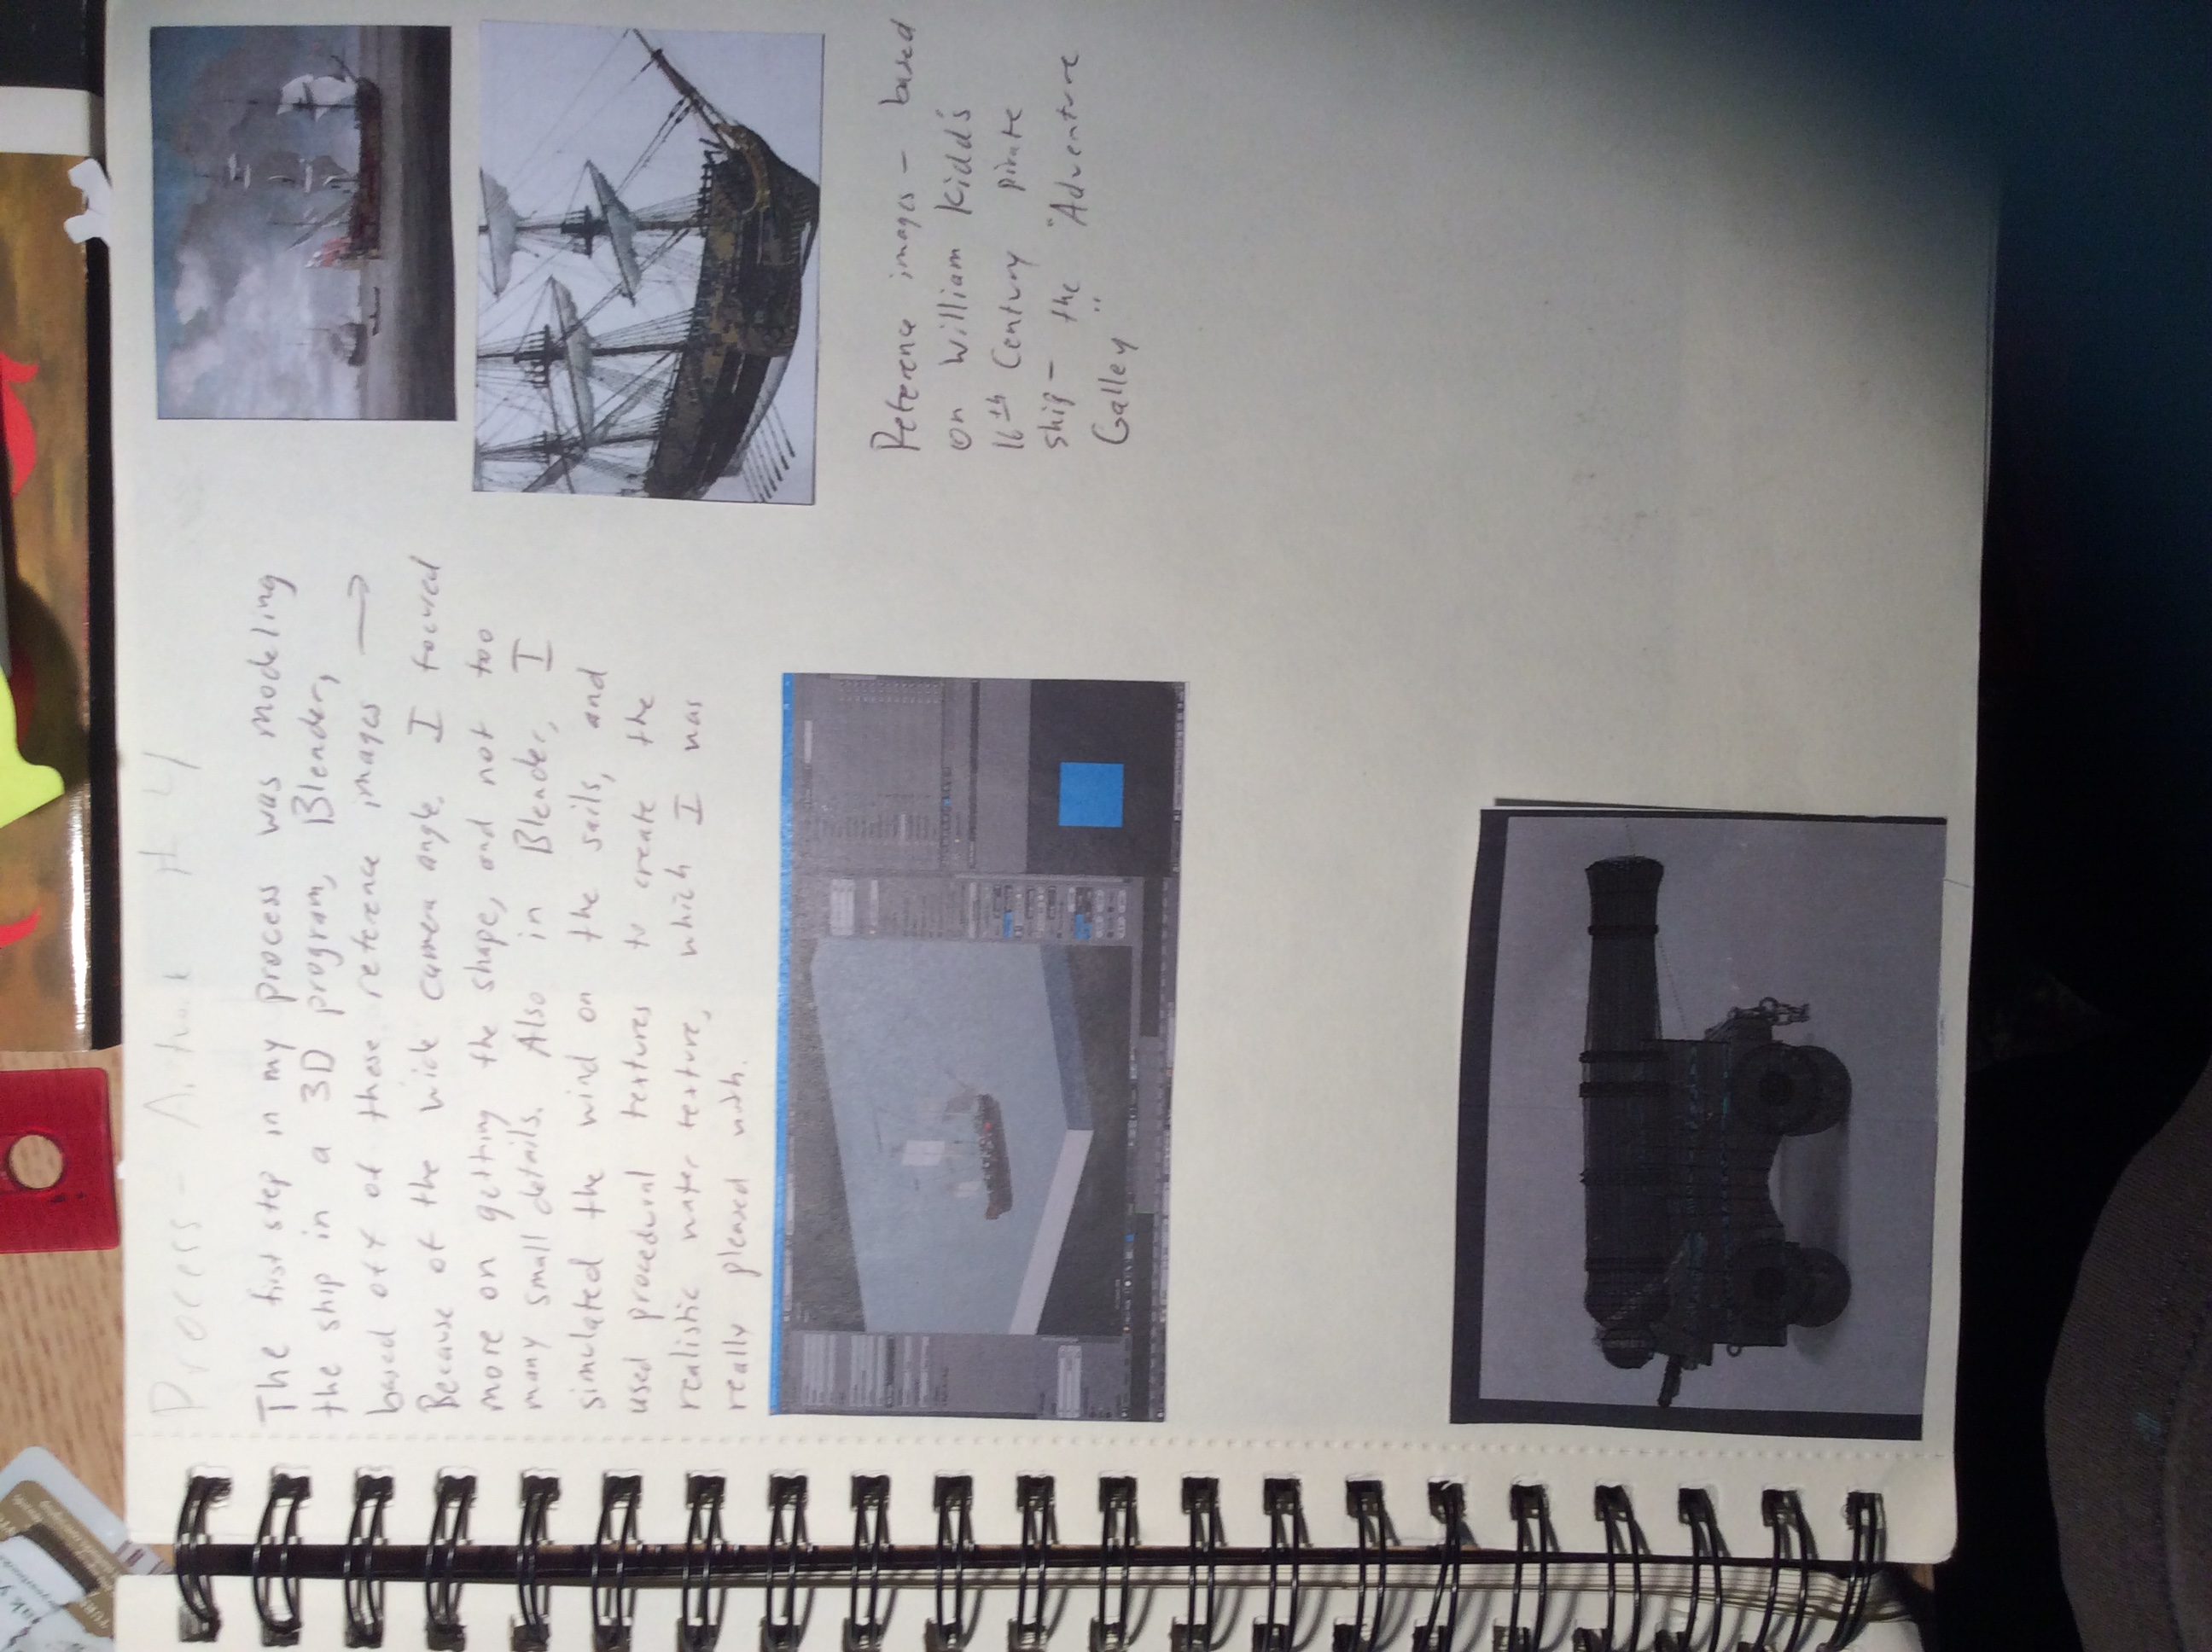 Process - Artwork #4
The first step in my process was modeling
the ship in a 3D program, Blender,
based off of these reference images →
Because of the wide camera angle. I focused
more on getting the shape, and not too
many small details. Also in Blender, I
simulated the wind on the sails, and
used procedural textures to create the
realistic water texture, which I was
really pleased with.
Reference images - based
on William Kidd's
16th Century pirate
ship - the "Adventure
Galley"